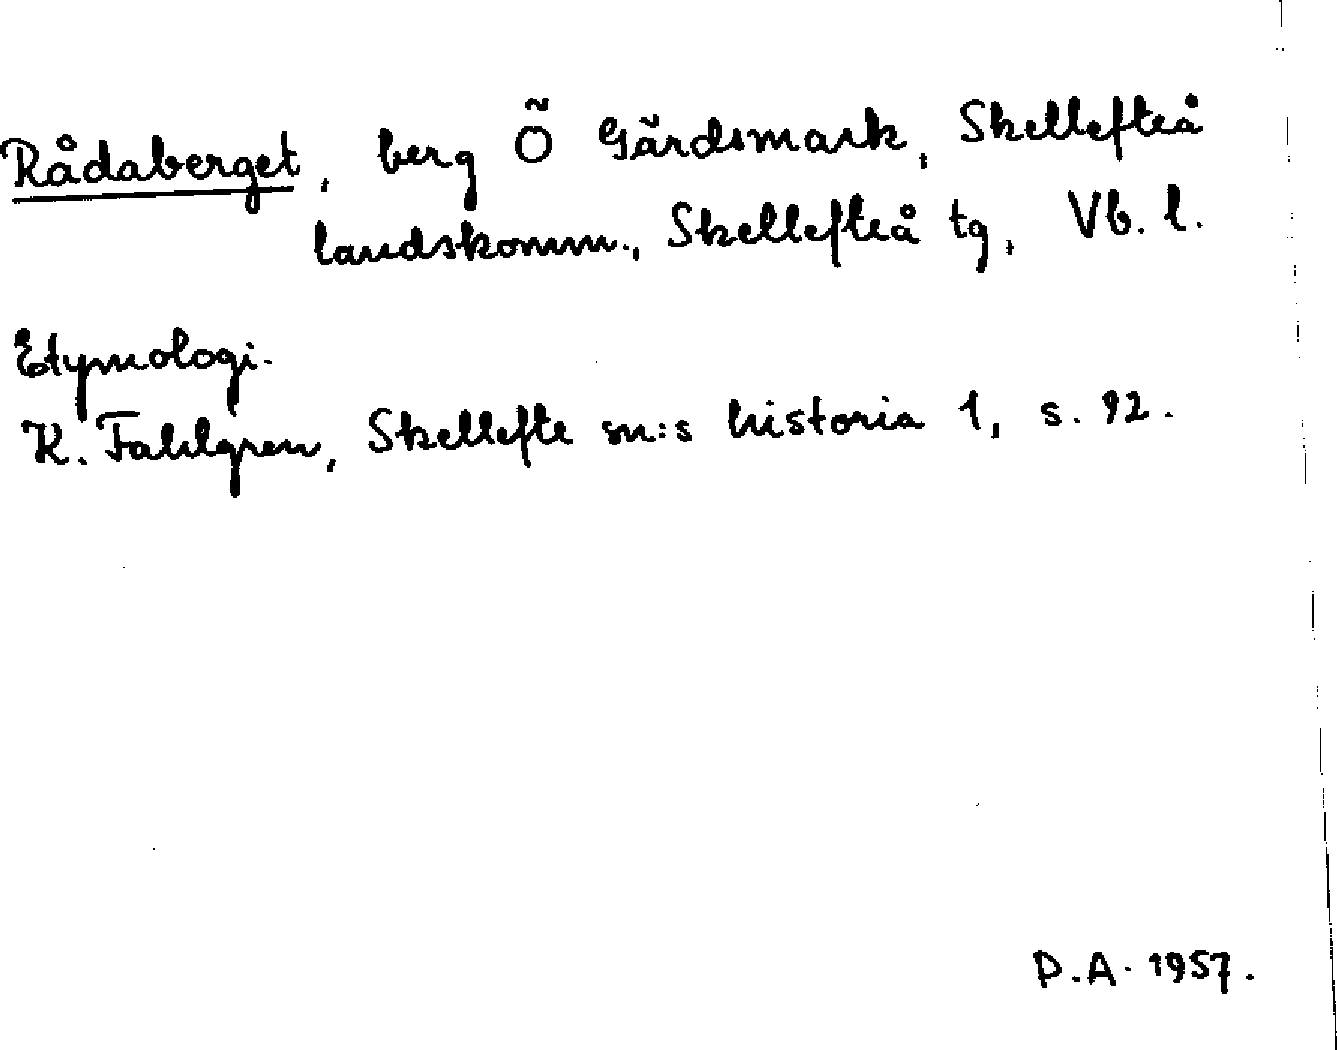 Rådaberget, berg Ö Gärdsmark, Skellefteå
landskomm., Skellefteå tg, Vb. l.
Etymologi.
K. Fahlgren, Skellefte sn:s historia 1, s. 92.
D.A. 1957.